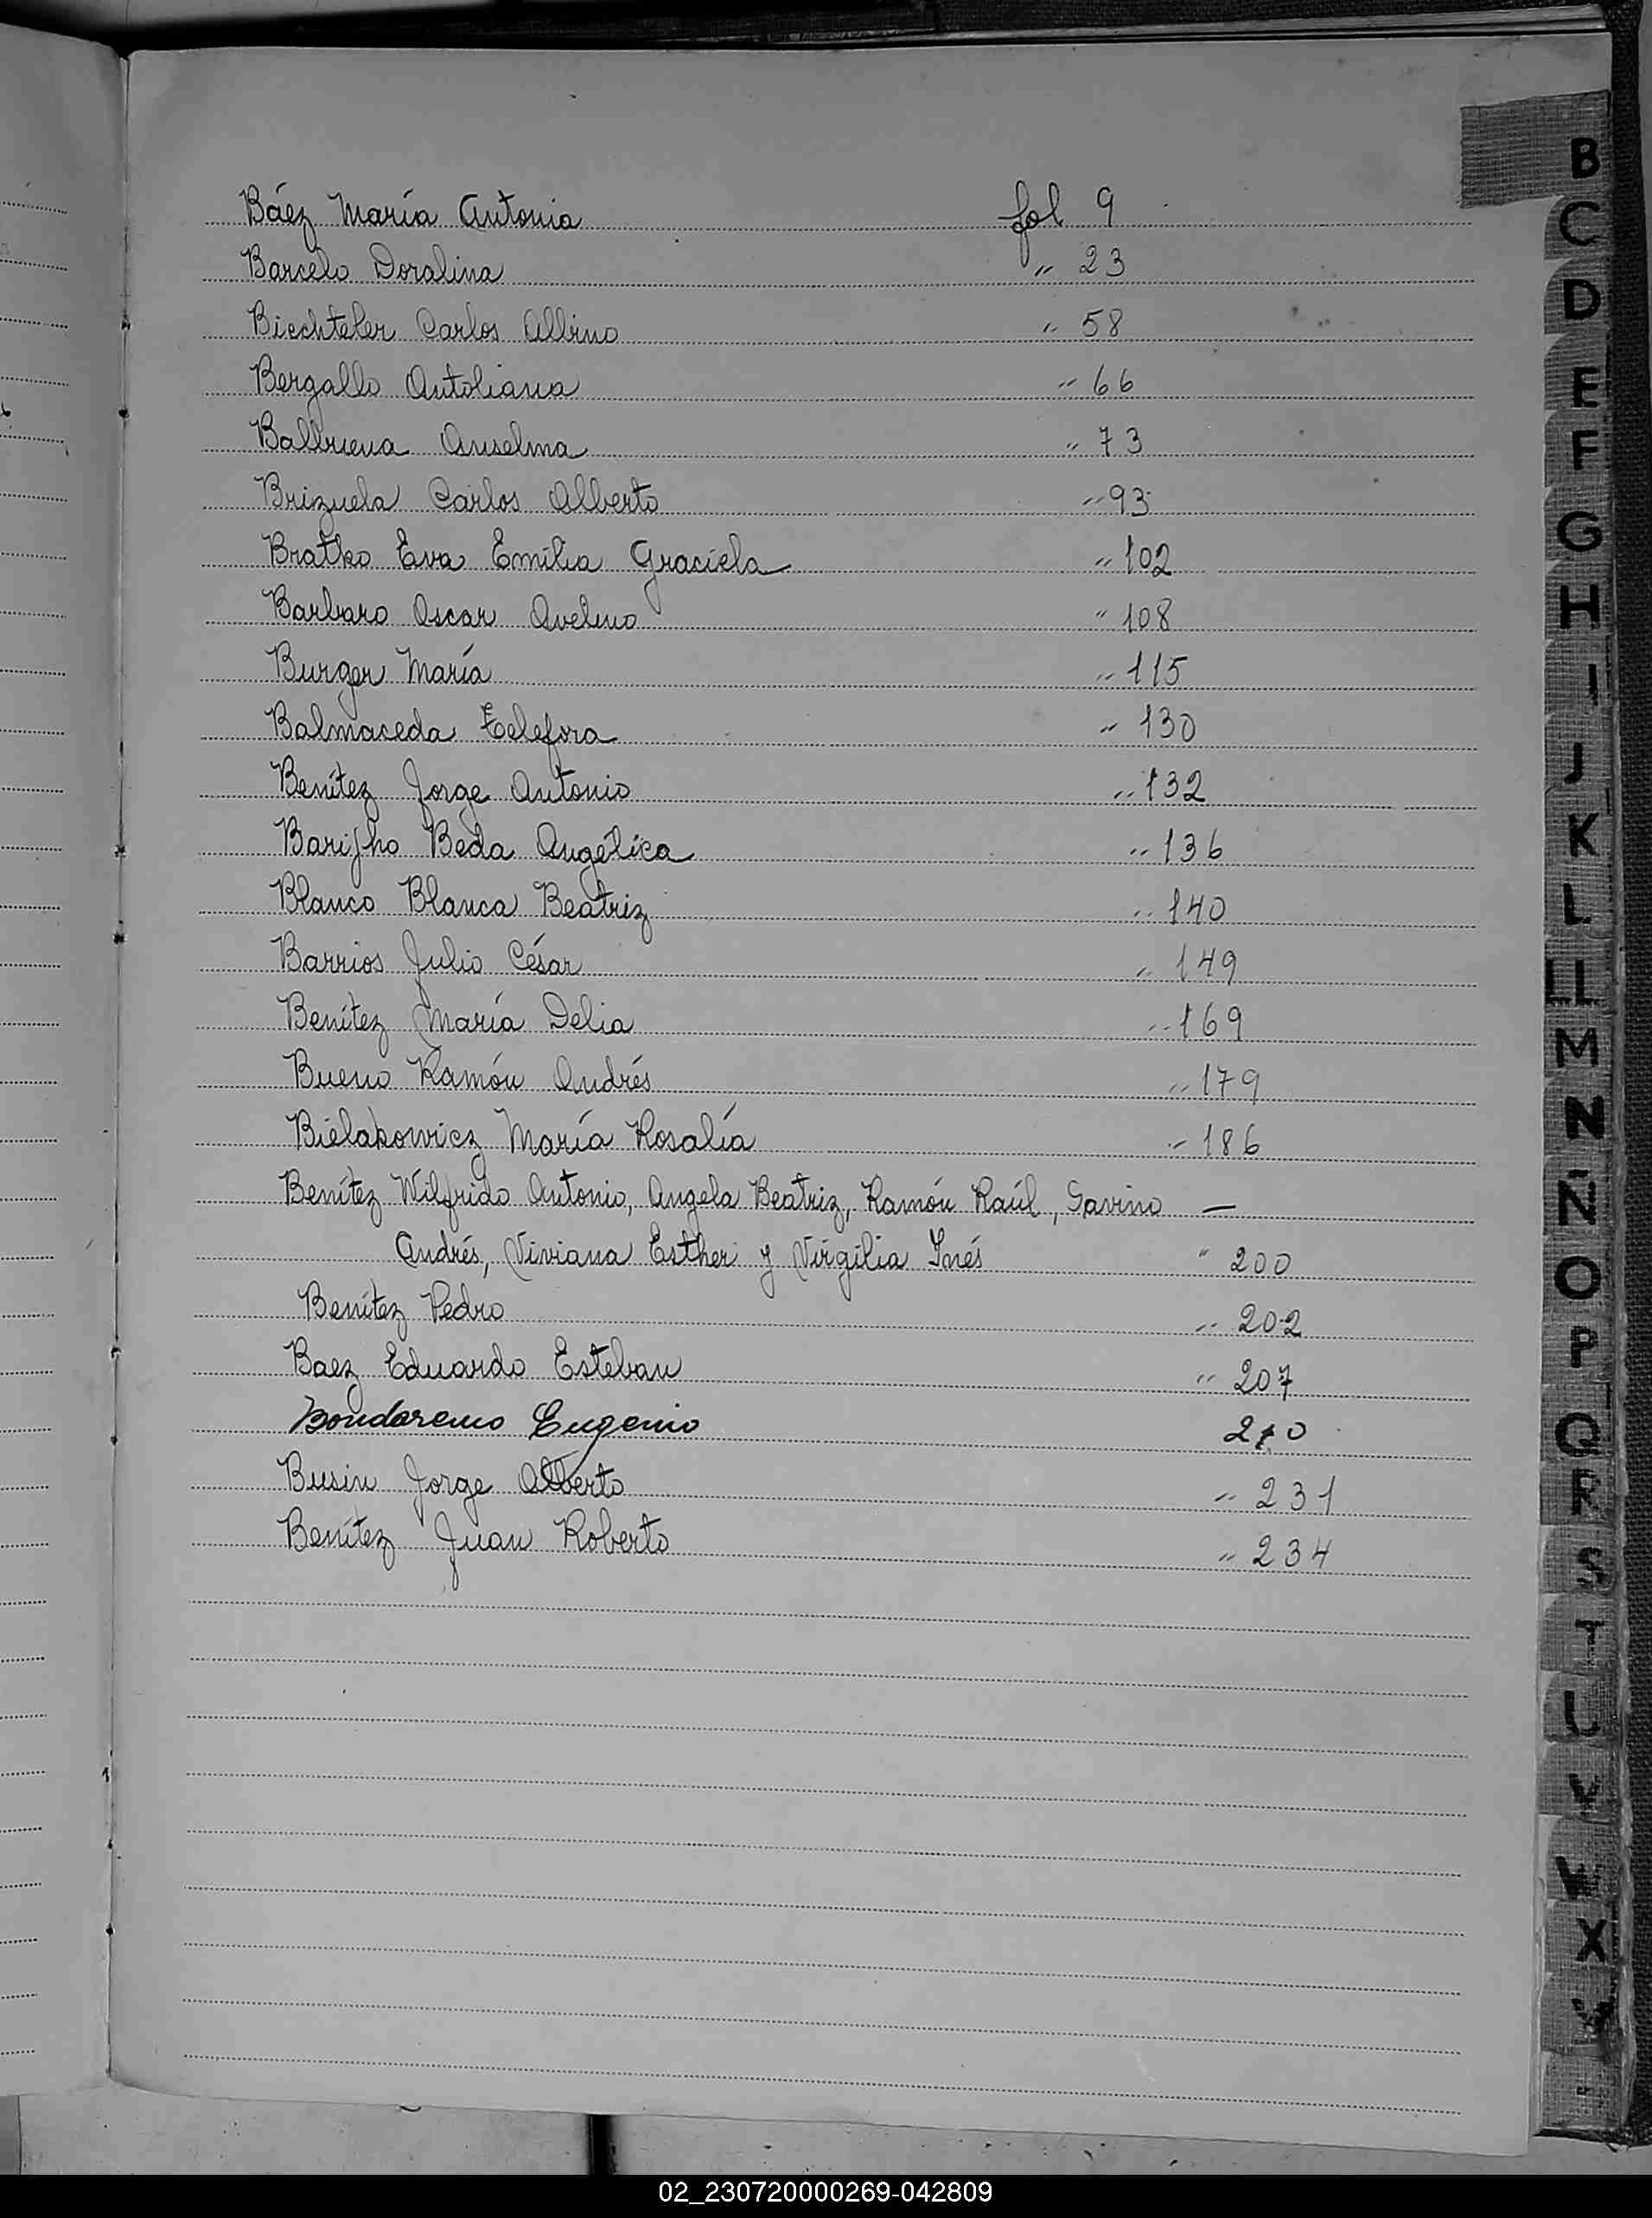 Báez María Antonia fol 9
Barcelo Doralina " 23
Biechteler Carlos Albino " 58
Bergallo Antoliana " 66
Balbuena Anselma " 73
Brizuela Carlos Alberto " 93
Bratko Eva Emilia Graciela " 102
Barbaro Oscar Avelino " 108
Burger María " 115
Balmaceda Telefora " 130
Benítez Jorge Antonio " 132
Beda Angélica " 136
Blanco Blanca Beatriz " 140
Barrios Julio César " 149
Benítez María Delia " 169
Bueno Ramón Andrés " 179
Bielakowicz María Rosalía " 186
Benítez Wilfrido Antonio, Angela Beatriz, Ramón Raúl, Savino —
Andrés, Viviana Esther y Virgilia Inés " 200
Benítez Pedro " 202
Baez Eduardo Esteban " 207
Bondarenco Eugenio 210
Busin Jorge Alberto " 231
Benítez Juan Roberto " 234
B
C
D
E
F
G
H
I
J
K
L
LL
M
N
Ñ
O
P
Q
R
S
T
U
V
W
X
Y
02_230720000269-042809